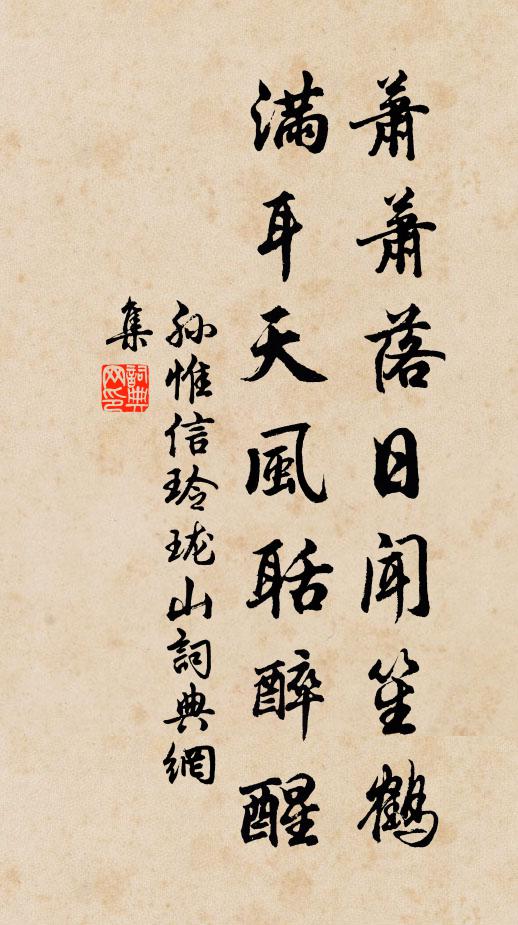 蕭蕭落日聞笙鶴
滿耳天風聒醉醒
孫惟信玲瓏山詞典網
集
詞典網印